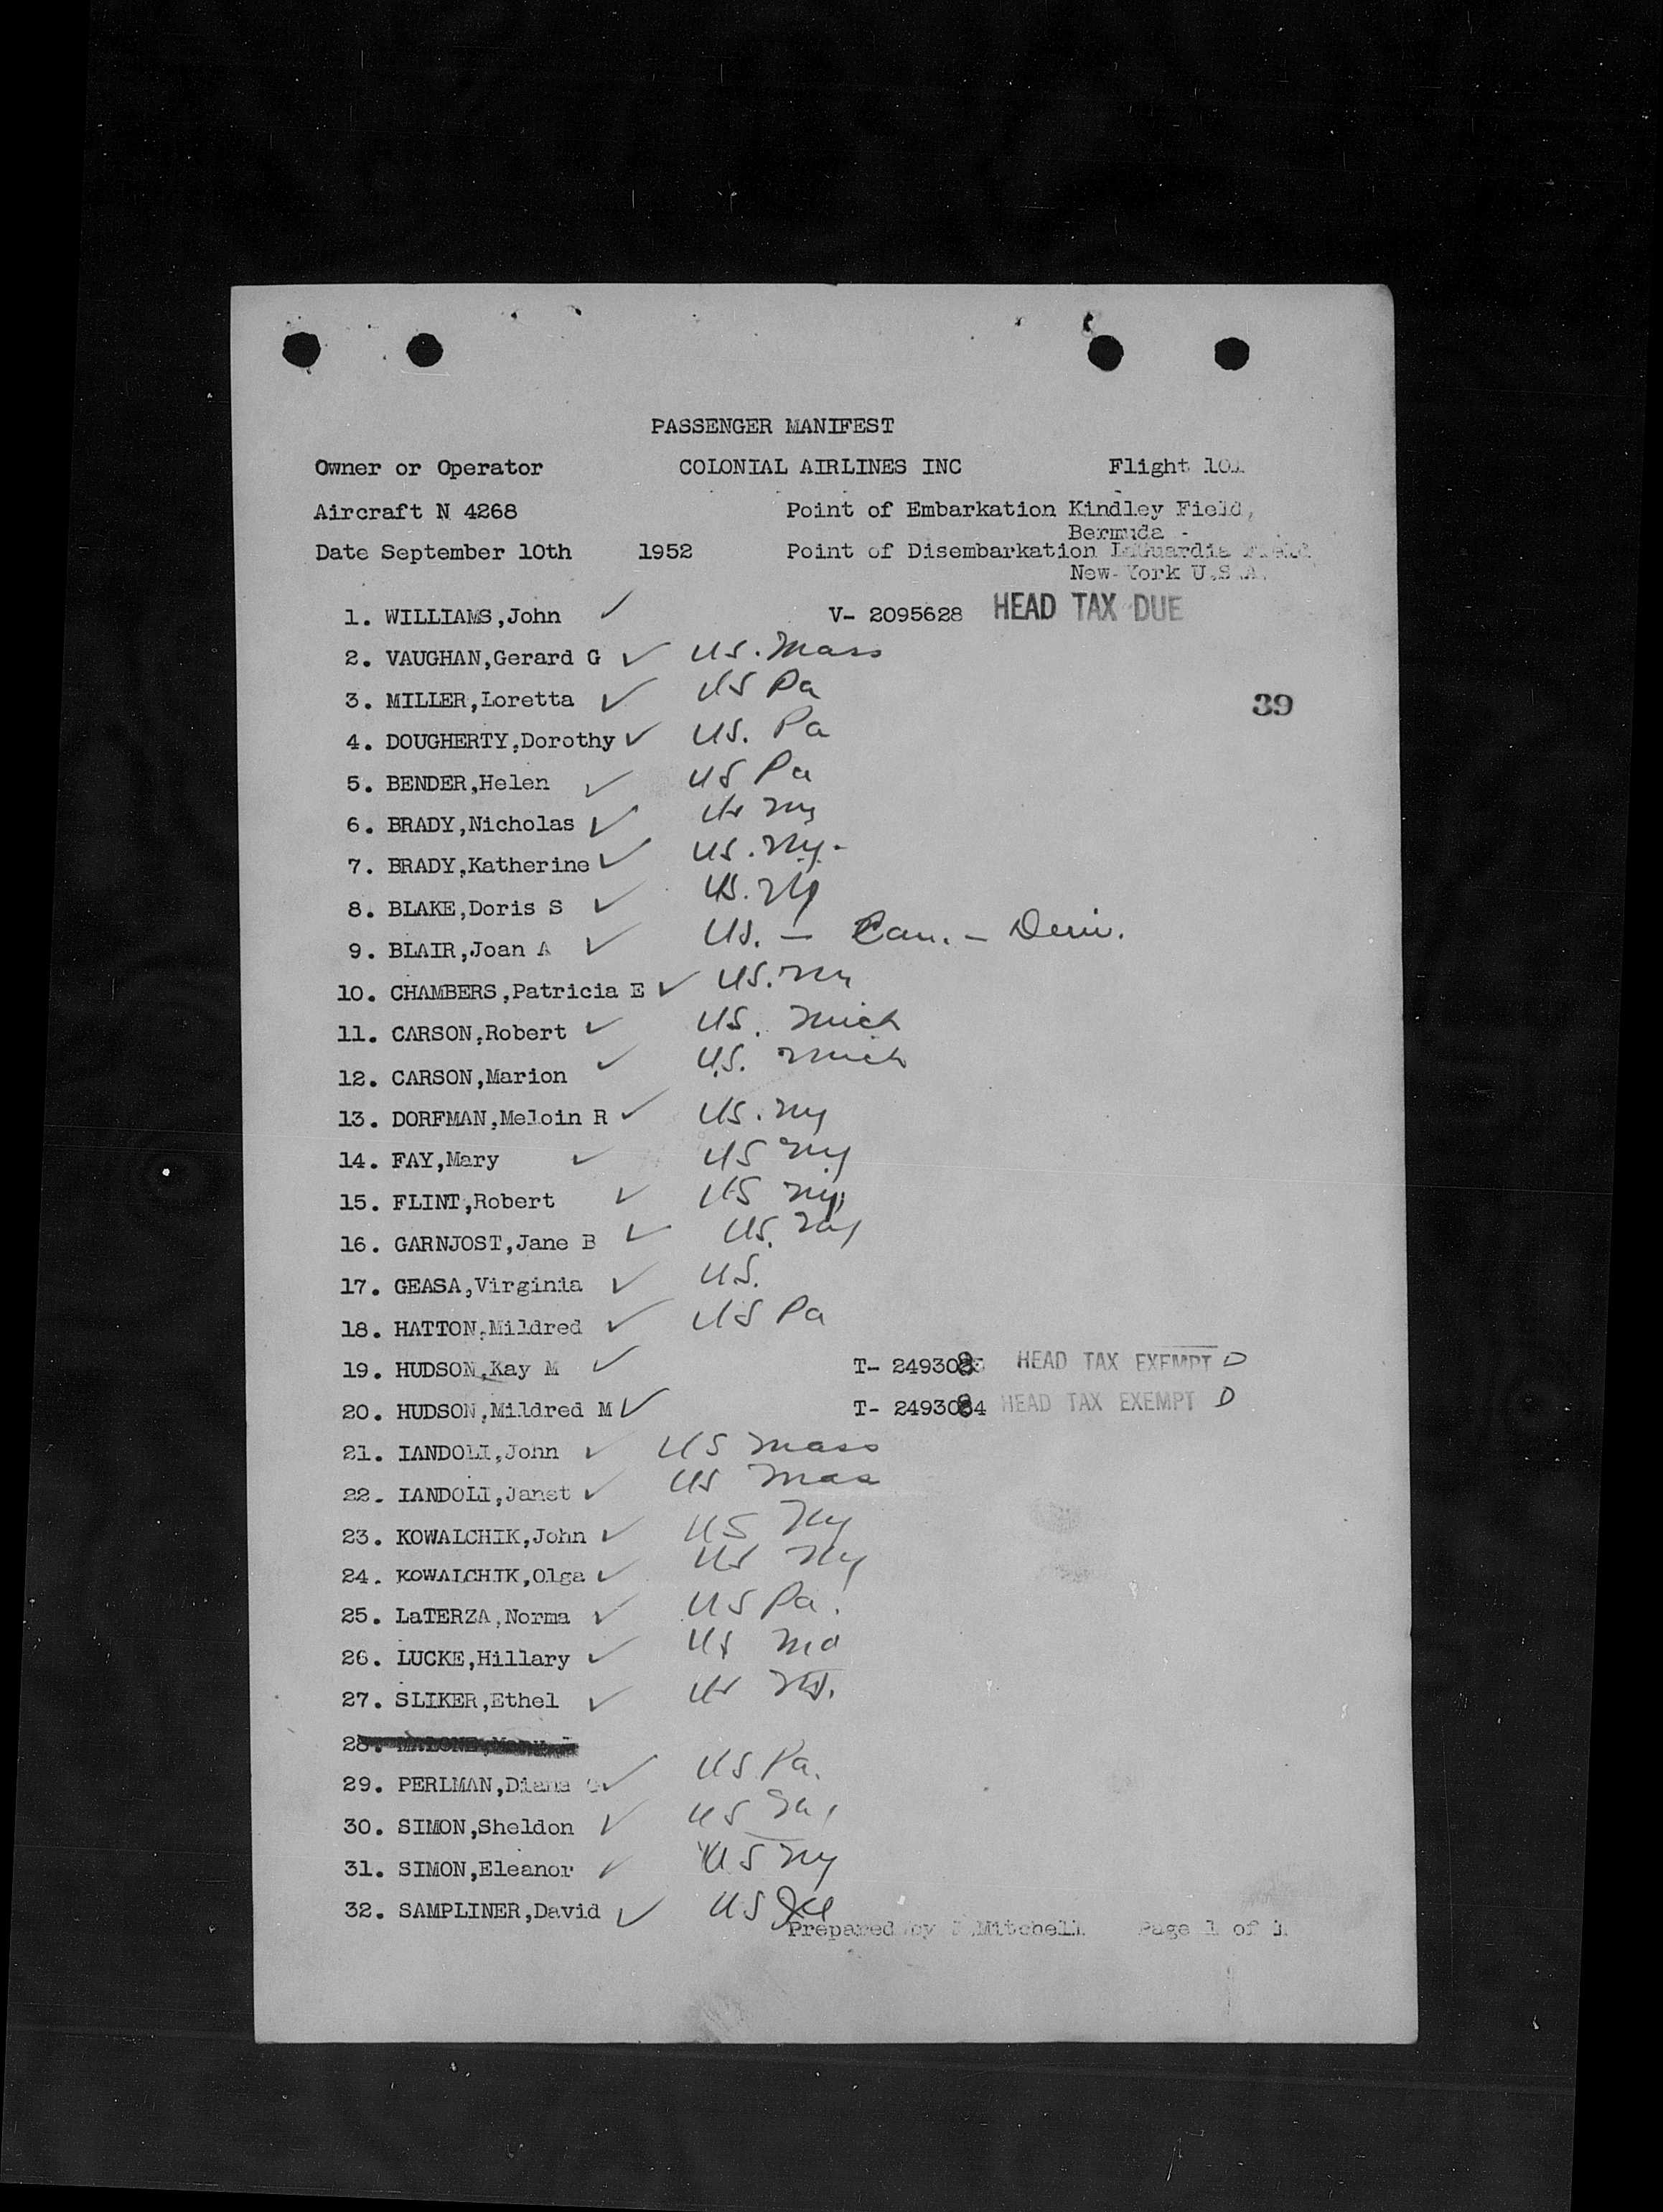 PASSENGER MANIFEST
Owner or Operator COLONIAL AIRLINES INC Flight 101
Aircraft N 4268 Point of Embarkation Kindley Field,
Bermuda -
Date September 10th 1952 Point of Disembarkation LaGuardia Field
New York U.S.A.
1. WILLIAMS,John ✓ V- 2095628 HEAD TAX DUE
2. VAUGHAN,Gerard G ✓ US. Mass
3. MILLER,Loretta ✓ US Pa
39
4. DOUGHERTY,Dorothy ✓ US. Pa
5. BENDER,Helen ✓ US Pa
6. BRADY,Nicholas ✓ US NY
7. BRADY,Katherine ✓ US. NY.
8. BLAKE,Doris S ✓ US. NY
9. BLAIR,Joan A ✓ US. — Can. — Deriv.
10. CHAMBERS,Patricia E ✓ US. NY
11. CARSON,Robert ✓ US. Mich
12. CARSON,Marion ✓ U.S. Mich
13. DORFMAN,Meloin R ✓ US. NY
14. FAY,Mary ✓ US NY
15. FLINT,Robert ✓ US NY
16. GARNJOST,Jane B ✓ US. NY
17. GEASA,Virginia ✓ US.
18. HATTON,Mildred ✓ US Pa
19. HUDSON,Kay M ✓ T- HEAD TAX EXEMPT D
20. HUDSON,Mildred M ✓ T- 2493084 HEAD TAX EXEMPT D
21. IANDOLI,John ✓ US Mass
22. IANDOLI,Janet ✓ US Mass
23. KOWALCHIK,John ✓ US NY
24. KOWALCHIK,Olga ✓ US NY
25. LaTERZA,Norma ✓ US Pa.
26. LUCKE,Hillary ✓ US Md
27. SLIKER,Ethel ✓ US NJ.
28. MALONE,
29. PERLMAN,Diana ✓ US Pa.
30. SIMON,Sheldon ✓ US NY
31. SIMON,Eleanor ✓ US NY
32. SAMPLINER,David ✓ US Ill
Prepared by Mitchell Page 1 of 1